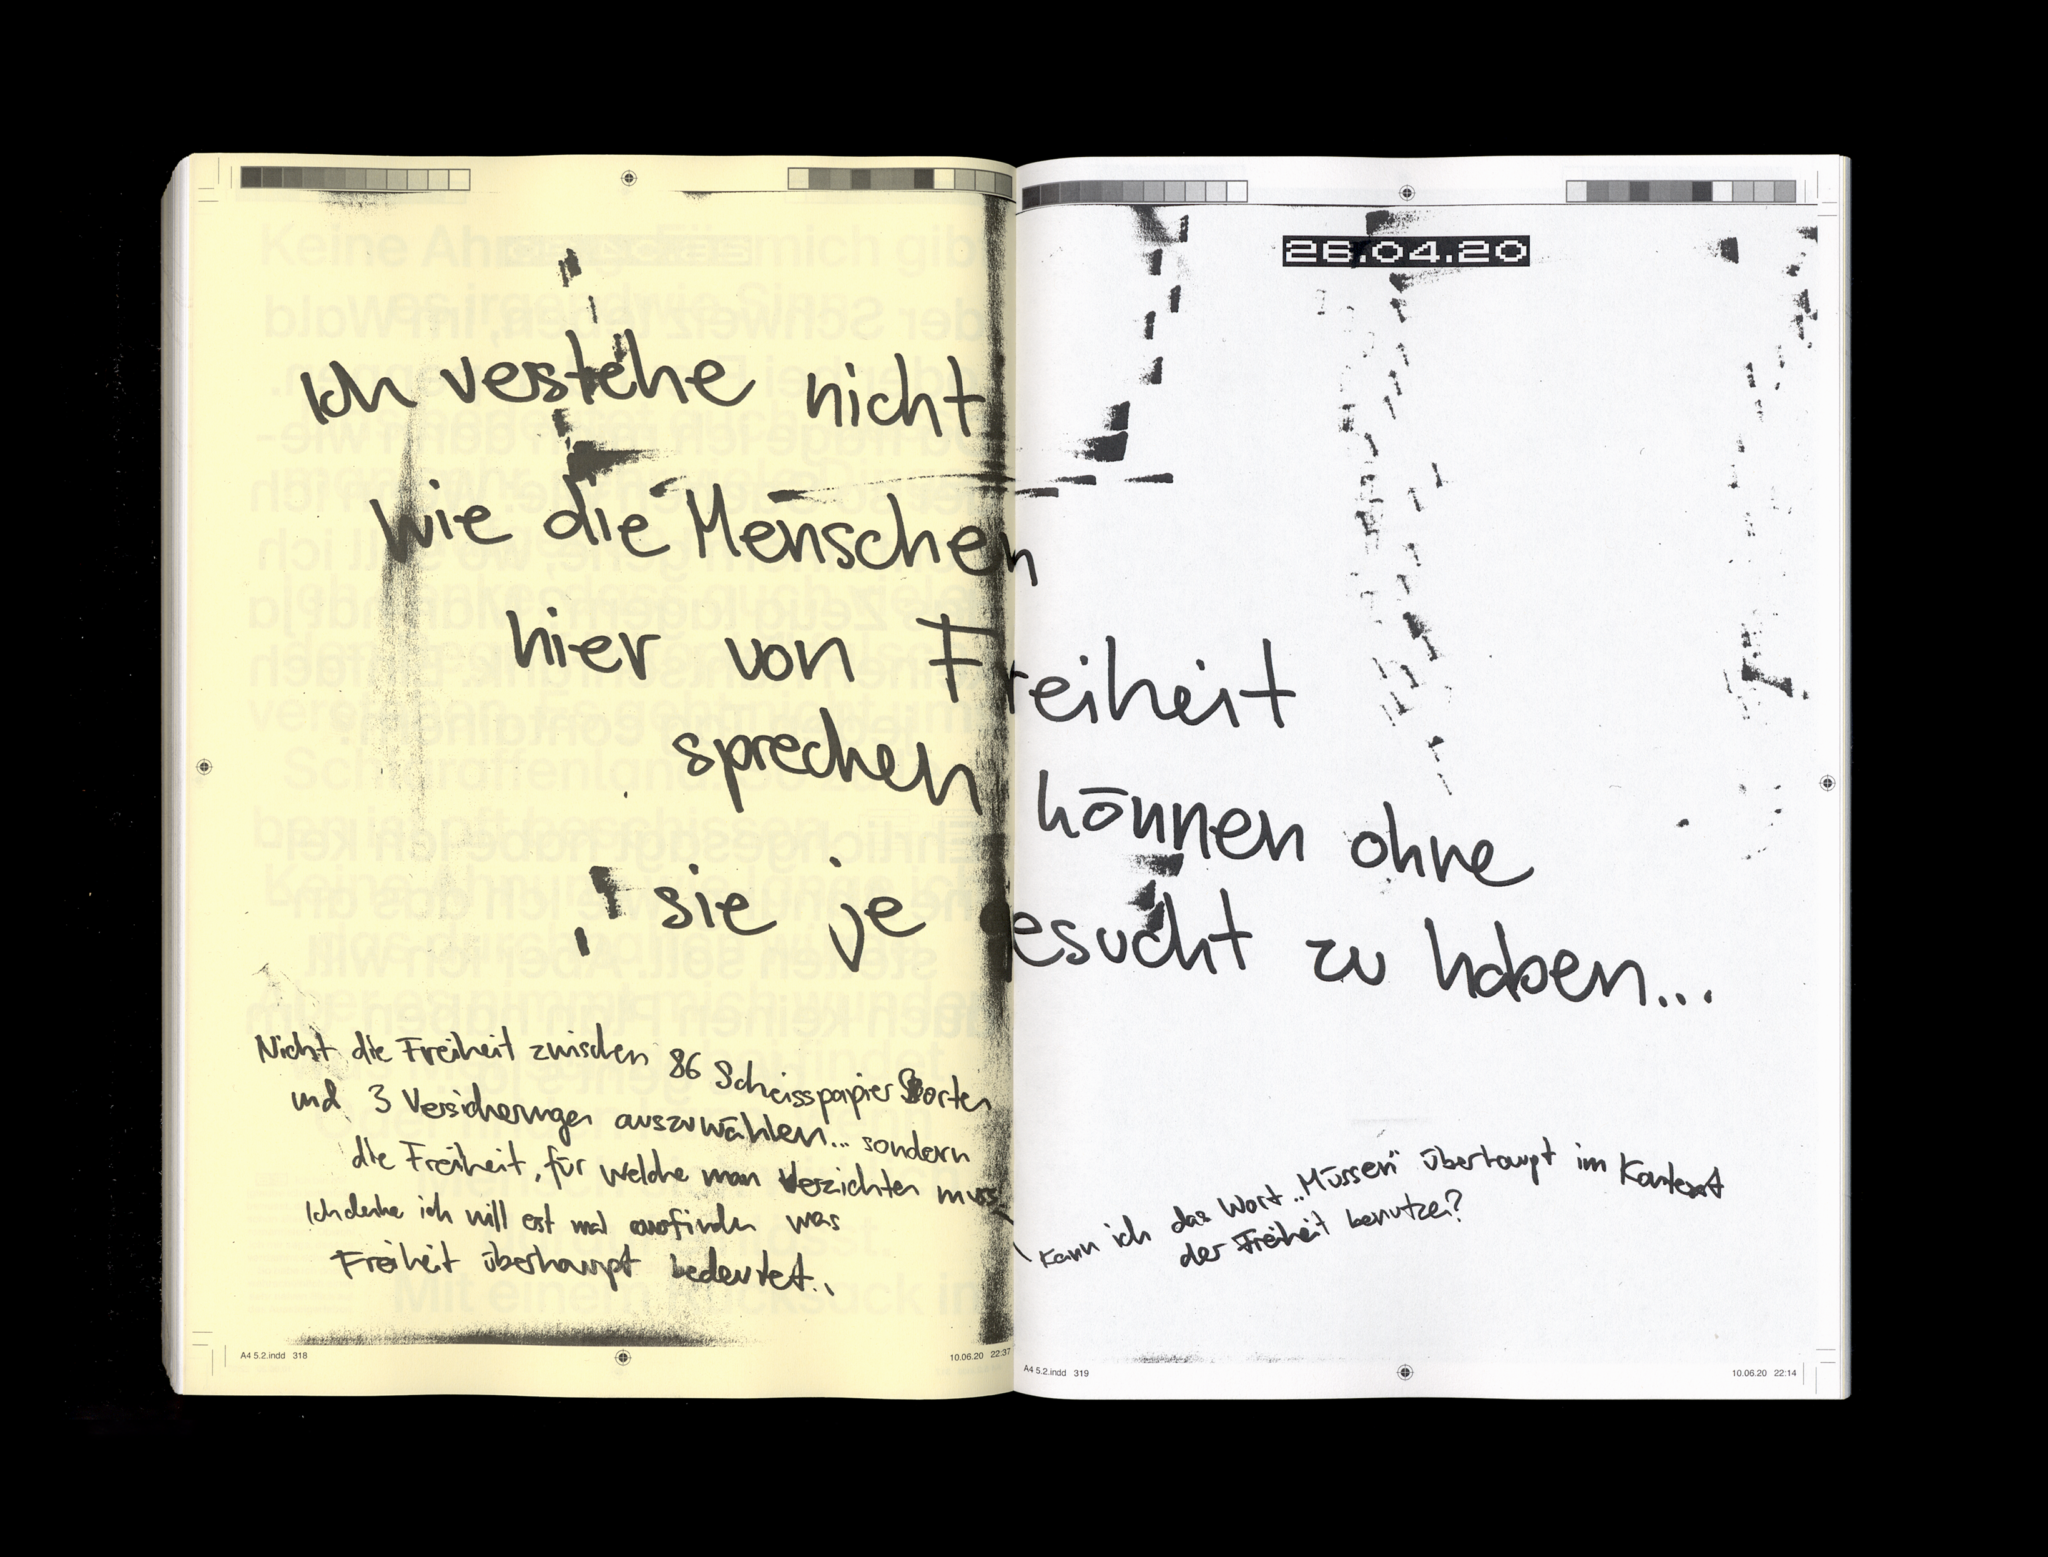 26.04.20
Ich verstehe nicht
wie die Menschen
hier von Freiheit
sprechen können ohne
sie je gesucht zu haben...
Nicht die Freiheit zwischen 86 Scheisspapier Sorten
und 3 Versicherungen auszuwählen... sondern
die Freiheit, für welche man verzichten muss
Ich denke ich will erst mal ausfinden was
Freiheit überhaupt bedeutet..
Kann ich das Wort „Müssen" überhaupt im Kontext
der Freiheit benutzen?
A4 5.2.indd 318
10.06.20 22:37
A4 5.2.indd 319
10.06.20 22:14